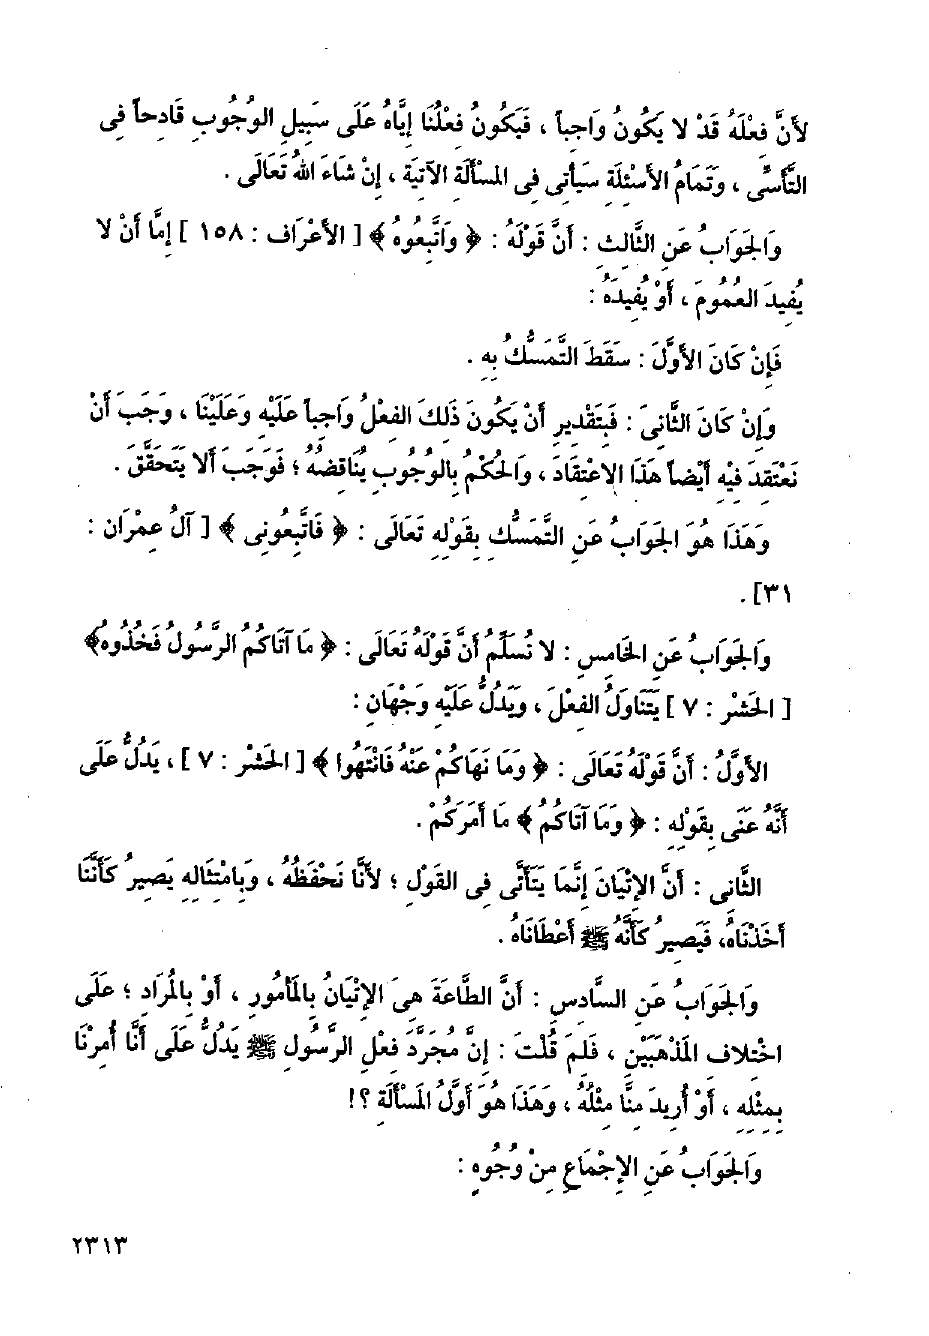 لأَنَّ فِعْلَهُ قَدْ لا يَكُونُ وَاجِباً ، فَيَكُونُ فِعْلُنَا إِيَّاهُ عَلَى سَبِيلِ الوُجُوبِ قَادِحاً فِى
التَّأَسِّى ، وَتَمَامُ الأَسْئِلَةِ سَيَأْتِى فِى المَسْأَلَةِ الآتِيَةِ ، إِنْ شَاءَ اللهُ تَعَالَى .
وَالجَوَابُ عَنِ الثَّالِثِ : أَنَّ قَوْلَهُ : ﴿ وَاتَّبِعُوهُ ﴾ [ الأَعْرَاف : ١٥٨ ] إِمَّا أَنْ لا
يُفِيدَ العُمُومَ ، أَوْ يُفِيدَهُ :
فَإِنْ كَانَ الأَوَّلَ : سَقَطَ التَّمَسُّكُ بِهِ .
وَإِنْ كَانَ الثَّانِىَ : فَبِتَقْدِيرِ أَنْ يَكُونَ ذَلِكَ الفِعْلُ وَاجِباً عَلَيْهِ وَعَلَيْنَا ، وَجَبَ أَنْ
نَعْتَقِدَ فِيهِ أَيْضاً هَذَا الاِعْتِقَادَ ، وَالحُكْمُ بِالوُجُوبِ يُنَاقِضُهُ ؛ فَوَجَبَ أَلا يَتَحَقَّقَ .
وَهَذَا هُوَ الجَوَابُ عَنِ التَّمَسُّكِ بِقَوْلِهِ تَعَالَى : ﴿ فَاتَّبِعُونِى ﴾ [ آلُ عِمْرَان :
٣١] .
وَالجَوَابُ عَنِ الخَامِسِ : لا نُسَلِّمُ أَنَّ قَوْلَهُ تَعَالَى : ﴿ مَا آتَاكُمُ الرَّسُولُ فَخُذُوهُ﴾
[ الحَشْر : ٧ ] يَتَنَاوَلُ الفِعْلَ ، وَيَدُلُّ عَلَيْهِ وَجْهَانِ :
الأَوَّلُ : أَنَّ قَوْلَهُ تَعَالَى : ﴿ وَمَا نَهَاكُمْ عَنْهُ فَانْتَهُوا ﴾ [ الحَشْر : ٧ ] ، يَدُلُّ عَلَى
أَنَّهُ عَنَى بِقَوْلِهِ : ﴿ وَمَا آتَاكُمُ ﴾ مَا أَمَرَكُمْ .
الثَّانِى : أَنَّ الإِتْيَانَ إِنَّمَا يَتَأَتَّى فِى القَوْلِ ؛ لأَنَّا نَحْفَظُهُ ، وَبِامْتِثَالِهِ يَصِيرُ كَأَنَّنَا
أَخَذْنَاهُ، فَيَصِيرُ كَأَنَّهُ ﷺ أَعْطَانَاهُ .
وَالجَوَابُ عَنِ السَّادِسِ : أَنَّ الطَّاعَةَ هِىَ الإِتْيَانُ بِالمَأْمُورِ ، أَوْ بِالمُرَادِ ؛ عَلَى
اخْتِلافِ المَذْهَبَيْنِ ، فَلِمَ قُلْتَ : إِنَّ مُجَرَّدَ فِعْلِ الرَّسُولِ ﷺ يَدُلُّ عَلَى أَنَّا أُمِرْنَا
بِمِثْلِهِ ، أَوْ أُرِيدَ مِنَّا مِثْلُهُ ، وَهَذَا هُوَ أَوَّلُ المَسْأَلَةِ ؟!
وَالجَوَابُ عَنِ الإِجْمَاعِ مِنْ وُجُوهٍ :
٢٣١٣